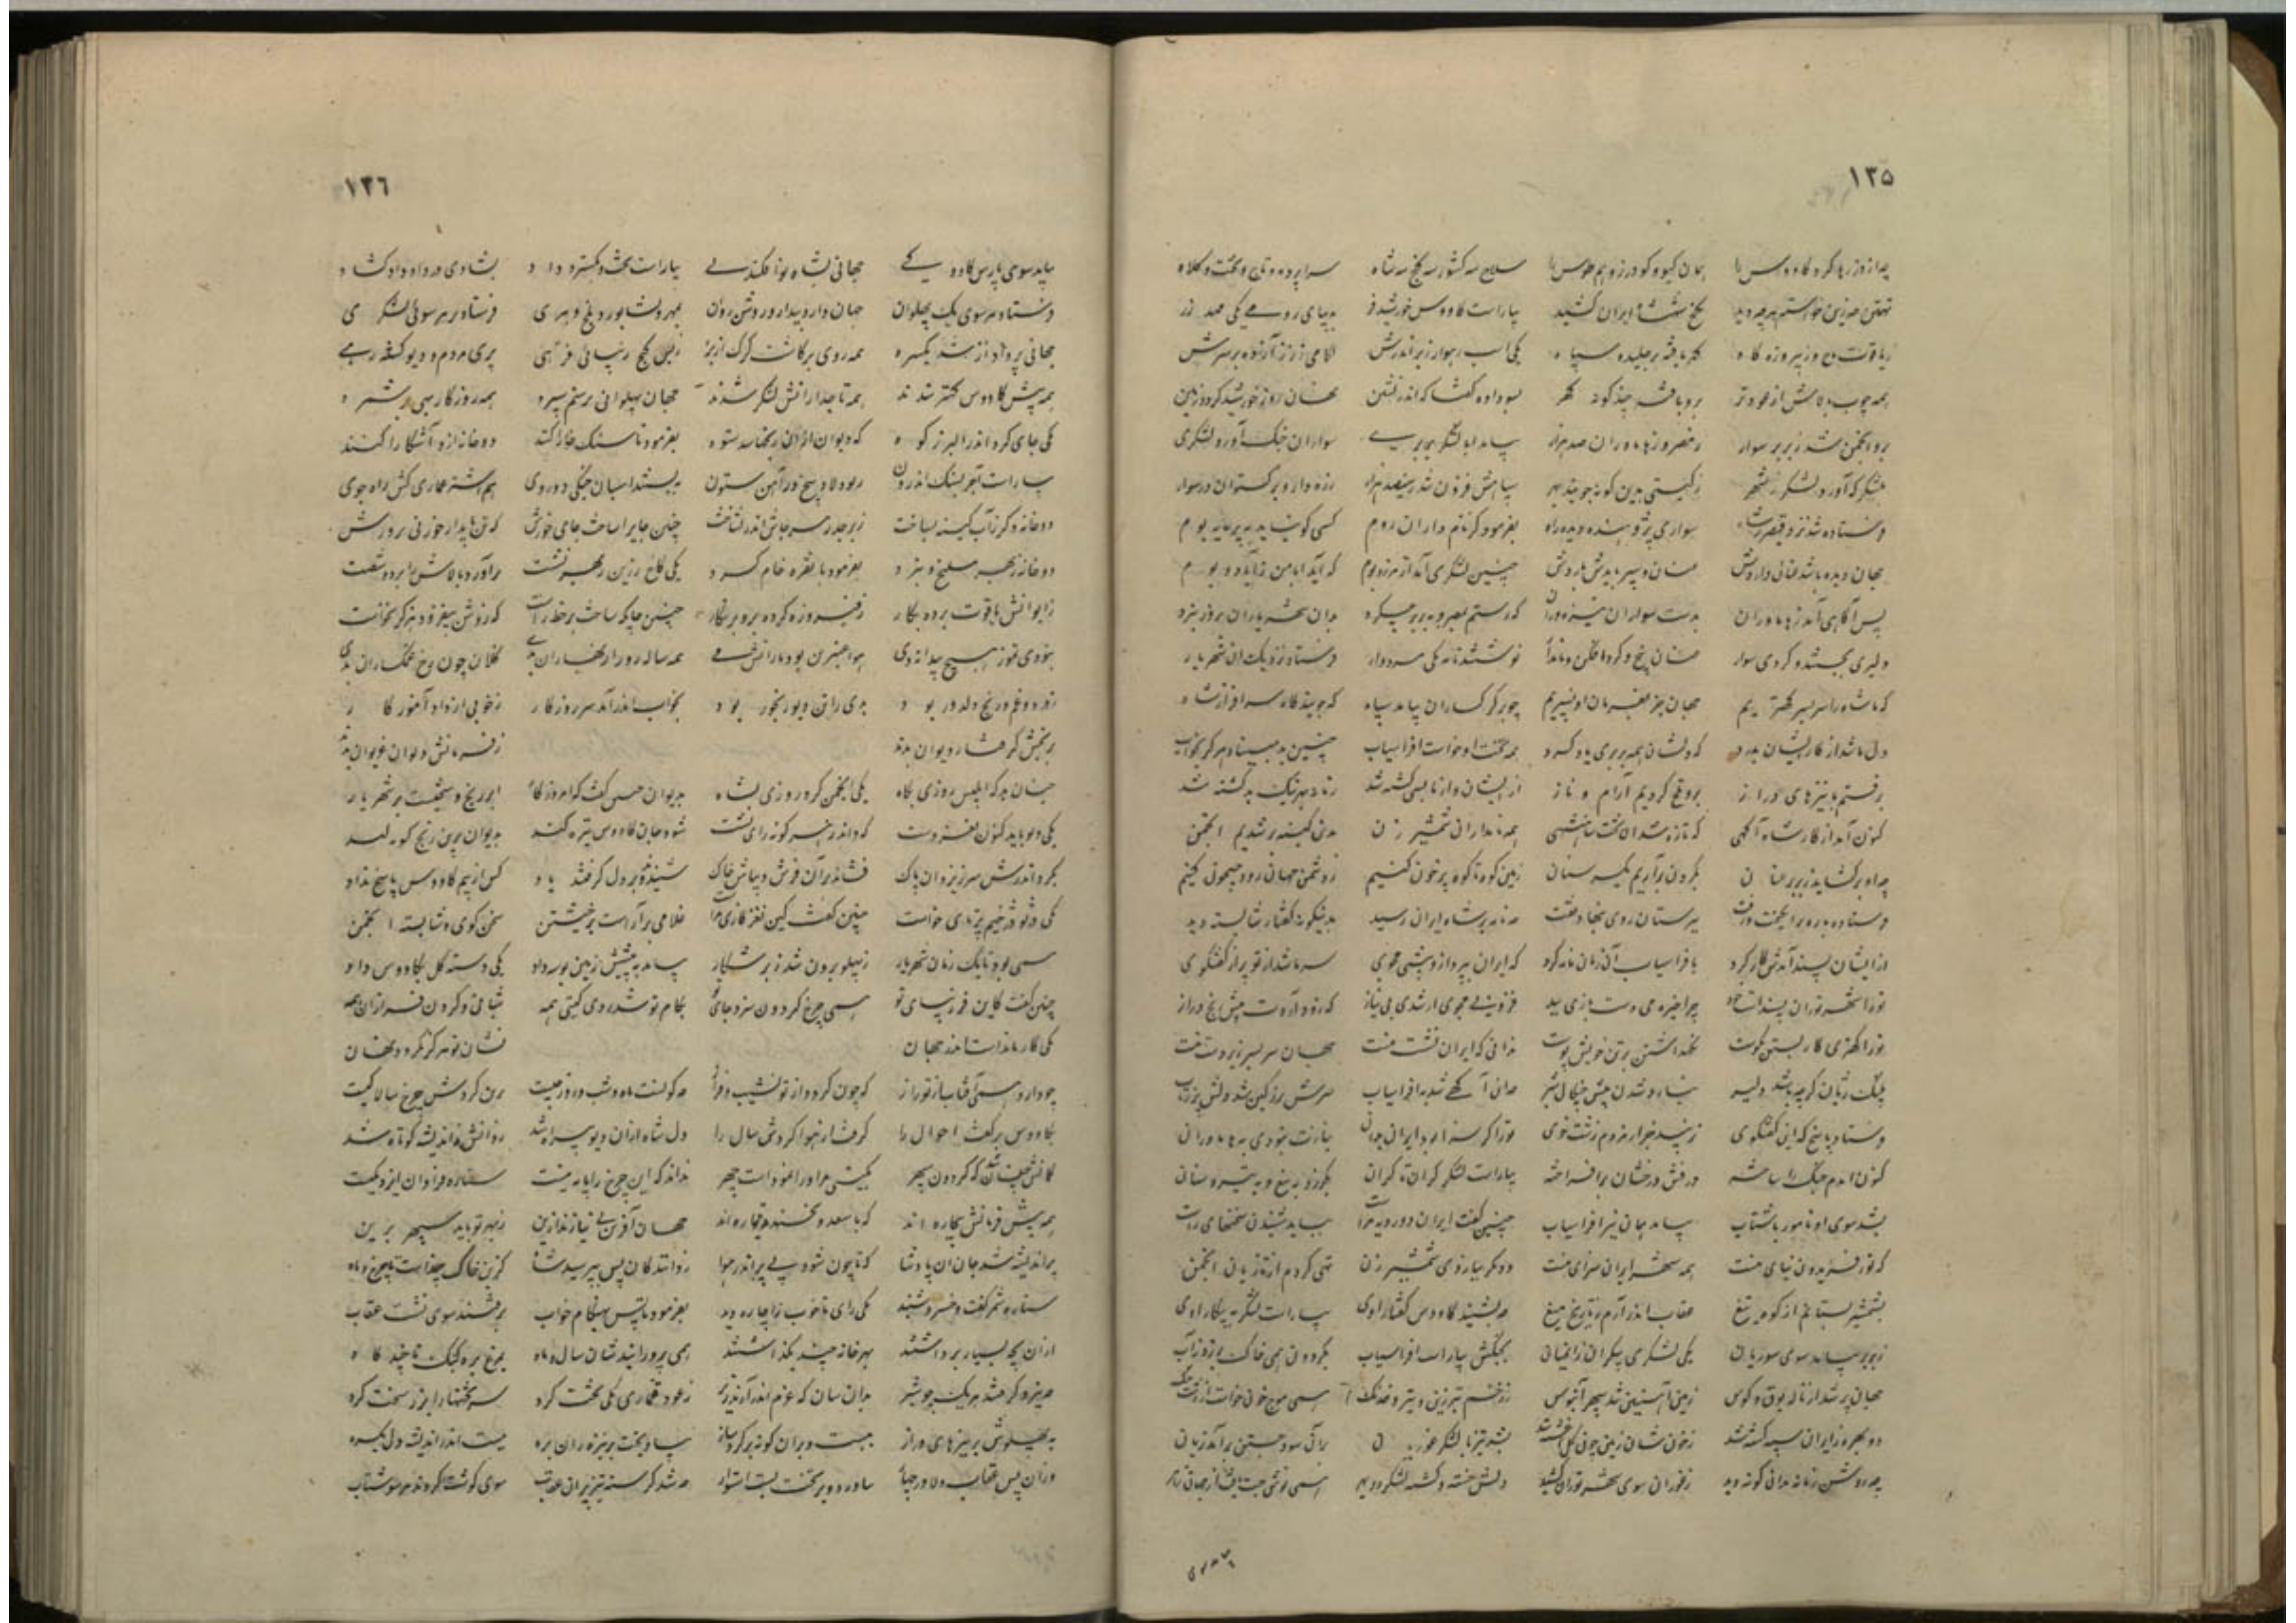 ۱۳۵
چو از دژ رها کرد کاووس را همان گیو و گودرز و هم طوس را سلاح سه کشور سه گنج سه شاه سراپرده و تاج و تخت و کلاه
تهمتن جز این خواسته هرچه دید بگنج شهنشاه ایران کشید بیاراست کاووس خورشید فر بدیبای رومی یکی مهد زر
ز یاقوت تاج و ز پیروزه گاه گهر بافته بر جلیل سیاه یکی اسب رهوار زیر اندرش لگامی ز زر آژده بر سرش
همه چوب بالاش از عود تر برو بافته چند گونه گهر بسودابه گفتا که اندر نشین نهان روز خورشید کرد و زمین
برو انجمن شد ز بربر سوار ز مصر و ز هاماوران صد هزار بیامد ابا لشکر بربری سواران جنگ آور و لشکری
بلشکرگه آورد لشکر ز شهر ز گیتی بدین گونه جویند بهر سپاهش فزون شد ز سیصد هزار زره‌دار و برگستوان‌ور سوار
فرستاده شد نزد قیصر ز شاه سواری پژوهنده و دیده راه بفرمود کز نامداران روم کسی کو نشاید به بر مایه بوم
جهان دیده باشد عنانی داروش سنان و سپر بایدش باروش چنین لشکری آمد از مرز و بوم که آید ابا من ز آباد بوم
پس آگاهی آمد ز هاماوران بدست سواران نیزه‌وران که رستم بمصر و به بربر چه کرد بدان شهریاران بروز نبرد
دلیری بجستند و گردی سوار عنان پیچ و گردافکن و نامدار نوشتند نامه یکی مردوار فرستاد نزدیک آن شهریار
که ما شاه را سربسر کهتریم جهان جز بفرمان او نسپریم چو از گرگساران بیامد سپاه که جویند گاه سرافراز شاه
دل ما شد از کار ایشان بدرد که دلشان همه بربری یاد کرد همه تخت او خواست افراسیاب چنین بد مبیناد هرگز بخواب
برفتیم با نیزهای دراز برو تلخ کردیم آرام و ناز از ایشان و از ما بسی کشته شد زمانه بهر نیک و بد گشته شد
کنون آمد از کار شاه آگهی که تازه شد آن تخت شاهنشهی همه نامداران شمشیر زن بدین کینه گه شدیم انجمن
چو او برگشاید ز بربر عنان بگردن برآریم یکسر سنان زمین کوه تا کوه پر خون کنیم ز دشمن جهان رود جیحون کنیم
فرستاده تازه برانگیخت و رفت به برستان روی بنهاد تفت چو نامه بر شاه ایران رسید بدینگونه گفتار شایسته دید
از ایشان پسند آمدش کارکرد بافراسیاب آن زمان نامه کرد که ایران بپرداز و بیشی مجوی سر ما شد از تو پر از گفتگوی
تو را شهر توران پسندست خود چرا خیره می دست یازی ببد فزونی مجوی ار شدی بی نیاز که درد آردت پیش رنج دراز
تو را کهتری کار بستن نکوست نگهداشتن بر تن خویش پوست ندانی که ایران نشست منست جهان سربسر زیر دست منست
پلنگ ژیان گرچه باشد دلیر نیارد شدن پیش چنگال شیر چو این آگهی شد بافراسیاب سرش پر ز کین شد دلش پر ز تاب
فرستاد پاسخ که این گفتگوی نزیبد جز از مردم زشت‌خوی تو را گر سزا بود ایران بدان نیازت نبودی به هاماوران
کنون آمدم جنگ را ساخته درفش درفشان برافراخته بیاراست لشکر کران تا کران بگرز و به تیغ و به تیر و سنان
بشد سوی او نامور با شتاب بیامد همان نیز افراسیاب چنین گفت ایران دو رویه مراست بباید شنیدن سخنهای راست
که تور فریدون نیای منست همه شهر ایران سرای منست و دیگر ببازوی شمشیر زن تهی کردم از تازیان انجمن
بشمشیر بستانم از کوه تیغ عقاب اندر آرم ز تاریک میغ چو بشنید کاووس گفتار اوی بیاراست لشکر به پیکار اوی
ز بربر بیامد سوی سوریان یکی لشکری بیکران و میان بجنگش بیاراست افراسیاب بگردون همی خاک بر زد ز آب
جهان پر شد از ناله بوق و کوس زمین آهنین شد سپهر آبنوس ز زخم تبرزین و تیر و خدنگ همی موج خون خواست از دشت جنگ
دو بهره ز ایران سپه کشته شد ز خون‌شان زمین چون گل آغشته شد
چو روشن زمانه بدان گونه دید ز توران سوی شهر توران کشید دلش خسته و کشته لشکر دو بهر همی نوش جست یافت از جهان زهر
۱۳۶
بیامد سوی پارس کاووس کی جهانی بشاه نو افکند پی بیاراست تخت و بگسترد داد بشادی در داد و داد گشاد
فرستاد هر سوی یک پهلوان جهاندار و بیدار و روشن روان بمرو و نشابور و بلخ و هری فرستاد بر هر سوئی لشکری
جهانی پر از داد شد یکسره همه روی برگاشت گرگ از بره ز بس گنج و زیبائی و فرهی پری مردم و دیو گشته رهی
همه پیش کاووس کهتر شدند همه تاجدارانش لشکر شدند جهان پهلوانی برستم سپرد همه روزگار بهی بر شمرد
یکی جای کرد اندر البرز کوه که دیوان از آن رنجها بد ستوه بفرمود تا سنگ خارا کنند دو خانه ازو آشکارا کنند
بیاراست آخر بسنگ اندرون ز پولاد میخ و ز آهن ستون ببستند اسپان جنگی دو روی هم اشتر عماری کش راه جوی
دو خانه دگر ز آبگینه بساخت زبرجد بهر جاش اندر نشاخت چنین جای را ساخت جای خورش که تن یابد از خوردنی پرورش
دو خانه ز بهر سلیح و نبرد بفرمود با نقره خام کرد یکی کاخ زرین ز بهر نشست برآورد بالاش را بر دو شست
ز ایوانش یاقوت برده بکار ز فیروزه کرده برو بر نگار چنین جایگه ساخت بر خط راست که روزش نیفزود هرگز نکاست
نبودی تموز ایچ پیدا ز دی هوا عنبرین بود و بارانش می همه ساله روز از بهاران بدی گلان چون رخ غمگساران بدی
ز درد و غم و رنج دل دور بود بدی را تن دیو رنجور بود بخواب اندر آمد سر روزگار ز خوبی و از داد آموزگار
برنجش گرفتار دیوان بدند ز فرمانش دیوان غریوان بدند
چنان بد که ابلیس روزی پگاه یکی انجمن کرد روزی بشاه بدیوان چنین گفت کامروز کار برنج و بسختیست بر شهریار
یکی دیو باید کنون نغز دست که داند ز هر گونه رای نشست شود جان کاووس بیره کند بدیوان برین رنج کوته کند
بگرداندش سر ز یزدان پاک فشاند بر آن فرّ و زیباش خاک شنیدند و بر دل گرفتند یاد کس از بیم کاووس پاسخ نداد
یکی دیو دژخیم بر پای خاست چنین گفت کین نغز کاری مراست غلامی برآراست بر خویشتن سخن‌گوی و شایسته انجمن
همی بود تا یک زمان شهریار ز پهلو برون شد ز بهر شکار بیامد به پیشش زمین بوسه داد یکی دسته گل بکاووس داد
چنین گفت کاین فر زیبای تو همی چرخ گردون سزد جای تو بکام تو شد روی گیتی همه شبانی و گردن‌فرازان رمه
یکی کار ماندست اندر جهان نشان تو هرگز نگردد نهان
چه دارد همی آفتاب از تو راز که چون گردد از تو نشیب و فراز چه گونست ماه و شب و روز چیست برین گردش چرخ سالار کیست
بکاووس برگفت احوال را گرفتار نیروی گردش سال را دل شاه از آن دیو بیراه شد روانش ز اندیشه کوتاه شد
گمانش چنان شد که گردون سپهر بگیتی مر او را نمودست چهر نداند که این چرخ را پایه نیست ستاره فراوان و ایزد یکیست
همه پیش فرمانش بیچاره‌اند که با سعد و نحسند و پتیاره‌اند جهان آفرین بی نیاز است ازین ز بهر تو باید سپهر برین
پر اندیشه شد جان آن پادشا که تا چون شود بی پر اندر هوا ز دانندگان پس بپرسید شاه کزین خاک چندست تا چرخ ماه
ستاره شمر گفت و خسرو شنید یکی رای ناخوب را چاره دید بفرمود تا پس بهنگام خواب برفتند سوی نشست عقاب
از آن بچه بسیار برداشتند بهر خانه چند بگذاشتند همی پرورانیدشان سال و ماه بمرغ و بره گاه تا چند گاه
چو نیرو گرفتند هر یک چو شیر بدان سان که غرم اندر آرند زیر ز عود قماری یکی تخت کرد سر تختها را بزر سخت کرد
به پهلوش بر نیزهای دراز ببست و بران گونه بر کرد ساز بیاویخت بر نیزه ران بره ببست اندر اندیشه دل یکسره
وزان پس عقاب دلاور چهار بیاورد و بر تخت بست استوار چو شد گرسنه تیز پران عقاب سوی گوشت کردند هر سو شتاب